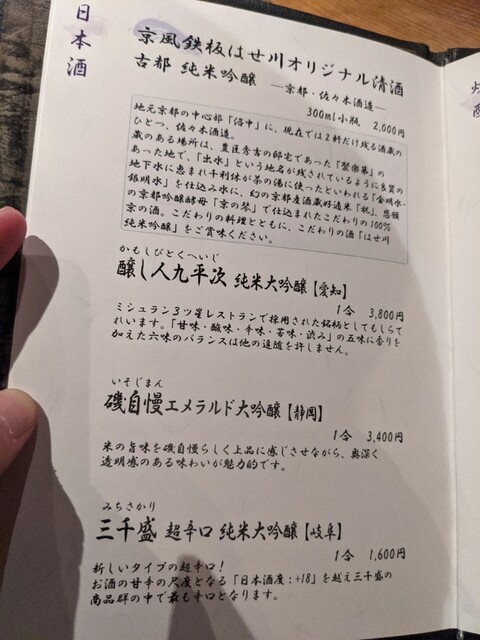 日本酒
京風鉄板はせ川オリジナル清酒
古都 純米吟醸 ―京都・佐々木酒造―
300ml小瓶 2,000円
地元京都の中心部「洛中」に、現在では2軒だけ残る酒蔵の
ひとつ、佐々木酒造。
蔵のある場所は、豊臣秀吉の邸宅であった「聚楽第」の
あった地で、「出水」という地名が残されているように良質の
地下水に恵まれ千利休が茶の湯に使ったといわれる「金明水・
銀明水」を仕込み水に、幻の京都産酒蔵好適米「祝」、悠願
の京都吟醸酵母「京の琴」で仕込まれたこだわりの100%
京の酒。こだわりの料理とともに、こだわりの酒「はせ川
純米吟醸」をご賞味ください。
かもしびとくへいじ
醸し人九平次 純米大吟醸【愛知】
1合 3,800円
ミシュラン3ツ星レストランで採用された銘柄としてもしら
れています。「甘味・酸味・辛味・苦味・渋み」の五味に香りを
加えた六味のバランスは他の追随を許しません。
いそじまん
磯自慢エメラルド大吟醸【静岡】
1合 3,400円
米の旨味を磯自慢らしく上品に感じさせながら、奥深く
透明感のある味わいが魅力的です。
みちさかり
三千盛 超辛口 純米大吟醸【岐阜】
1合 1,600円
新しいタイプの超辛口!
お酒の甘辛の尺度となる「日本酒度:+18」を越え三千盛の
商品群の中で最も辛口となります。